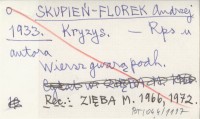 SKUPIEŃ-FLOREK Andrzej
1933. Kryzys. – Rps u
autora
Wiersz gwarą podh.
Rec.: ZIĘBA M. 1966, 1972.